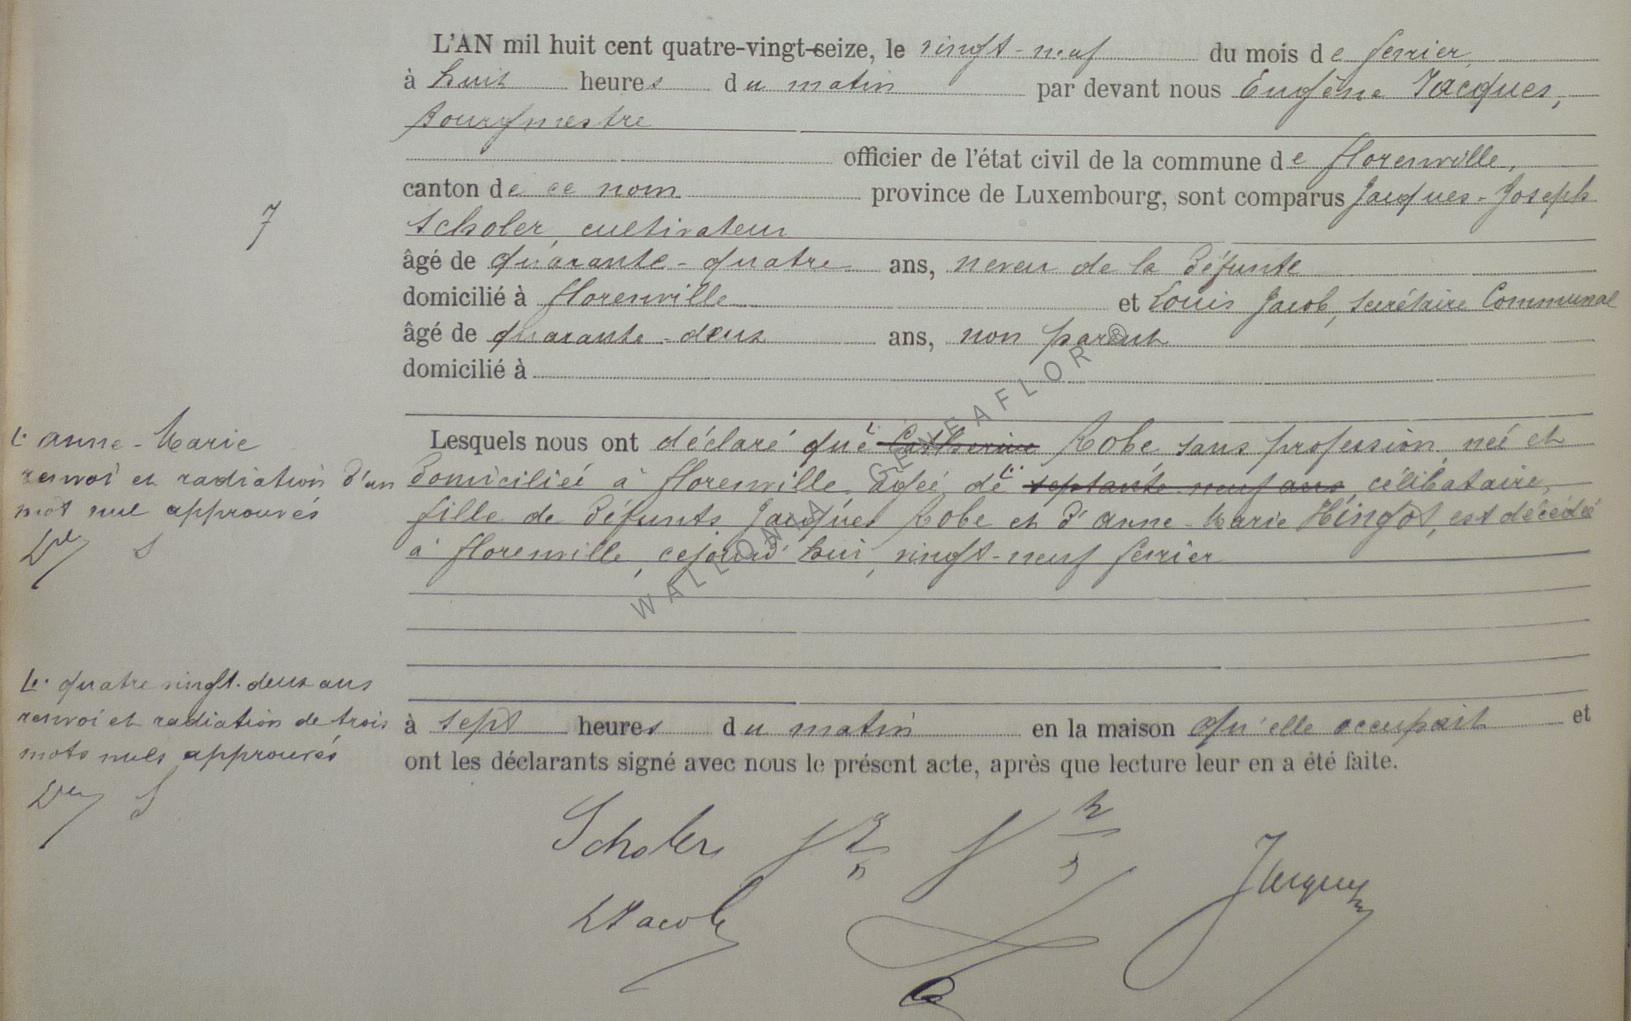 L'AN mil huit cent quatre-vingt-seize, le vingt-neuf du mois de fevrier,
à huit heures du matin par devant nous Eugène Jacques,
Bourgmestre
officier de l'état civil de la commune de Florenville,
canton de ce nom province de Luxembourg, sont comparus Jacques-Joseph
Scholer, cultivateur
7
âgé de quarante-quatre ans, neveu de la défunte
domicilié à Florenville et Louis Jacob, secrétaire Communal
âgé de quarante-deux ans, non parent
domicilié à
Lesquels nous ont déclaré que 1. Catherine Robe, sans profession, née et
domiciliée à Florenville, âgée de 2. septante-neuf ans célibataire,
fille de défunts Jacques Robe et d'Anne-Marie Hingot, est décédée
à Florenville, cejourd'hui, vingt-neuf fevrier
1. anne-Marie
renvoi et radiation d'un
mot nul approuvés
S
2. quatre vingt-deux ans
renvoi et radiation de trois
mots nuls approuvés
S
à sept heures du matin en la maison qu'elle occupait et
ont les déclarants signé avec nous le présent acte, après que lecture leur en a été faite.
Scholer
Jacques
L Jacob
WALLONIA GENEAFLOR ©